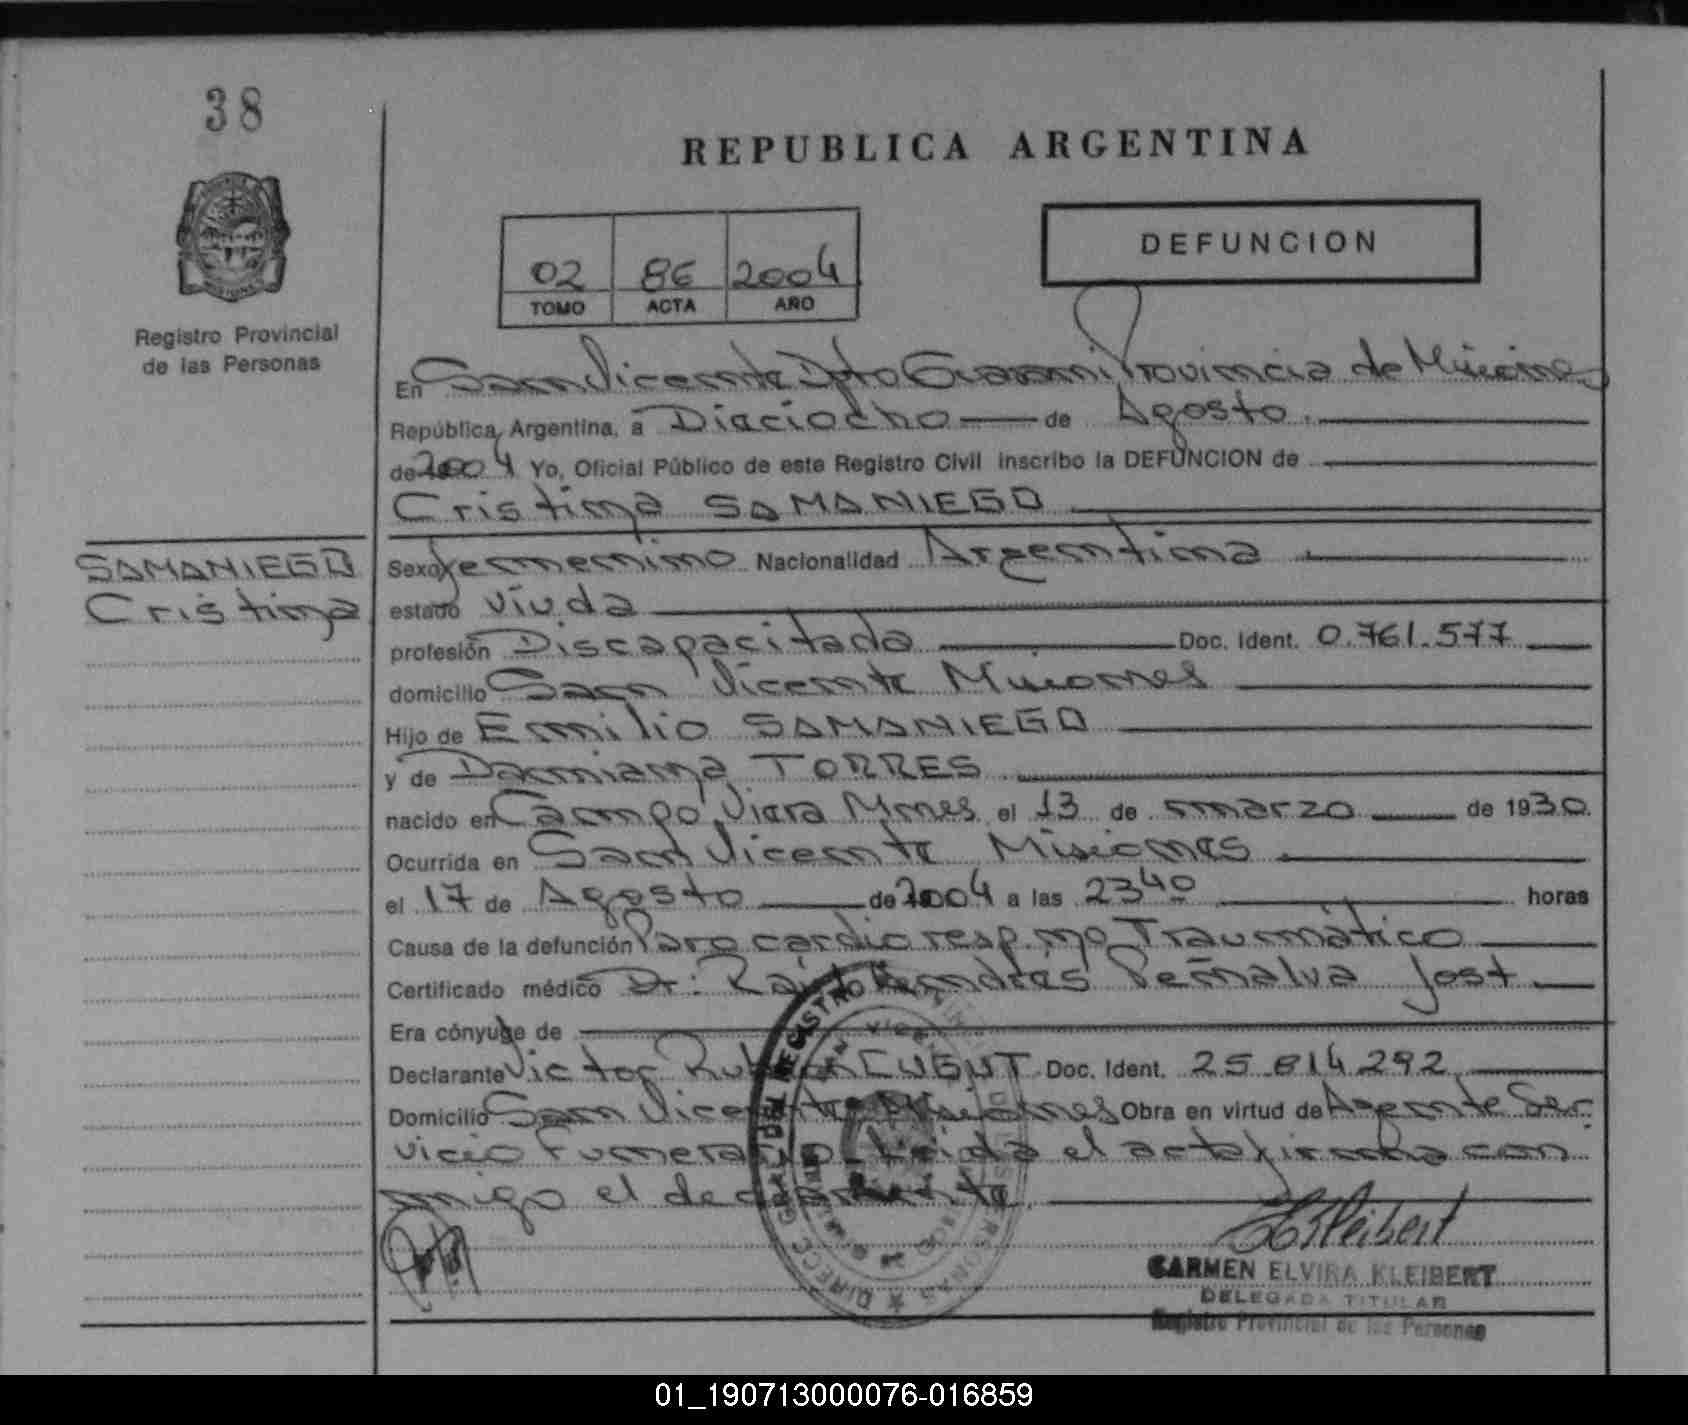 38
REPUBLICA ARGENTINA
DEFUNCION
02 86 2004
TOMO ACTA AÑO
Registro Provincial
de las Personas
En San Vicente Dpto Guarani Provincia de Misiones
República Argentina, a Dieciocho de Agosto
de 2004 Yo, Oficial Público de este Registro Civil inscribo la DEFUNCION de
Cristina SAMANIEGO
SAMANIEGO
Cristina
Sexo femenino Nacionalidad Argentina
estado viuda
profesión Discapacitada Doc. Ident. 0.761.577
domicilio San Vicente Misiones
Hijo de Emilio SAMANIEGO
y de Damiana TORRES
nacido en Campo Viera Mnes el 13 de marzo de 1930
Ocurrida en San Vicente Misiones
el 17 de Agosto de 2004 a las 23 40 horas
Causa de la defunción Paro cardio resp. no Traumático
Certificado médico Dr: Raúl Andrés Peñalva Jost
Era cónyuge de
Declarante Victor Doc. Ident. 25 814 292
Domicilio San Vicente Misiones Obra en virtud de Agente Ser
vicio Funerario Leida el acta firmha con
migo el declarante
CARMEN ELVIRA KLEIBERT
DELEGADA TITULAR
Registro Provincial de las Personas
01_190713000076-016859